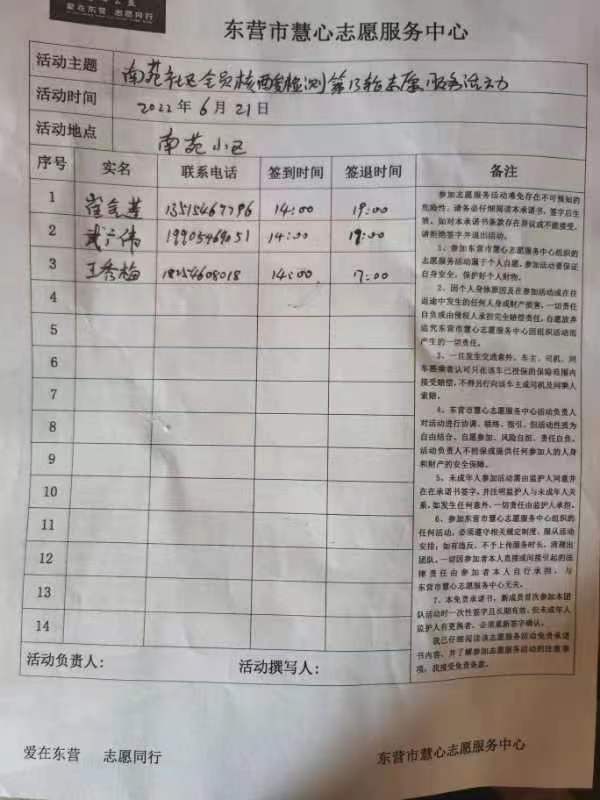 爱在东营 志愿同行
东营市慧心志愿服务中心
活动主题 南苑社区全员核酸检测第13轮志愿服务活动
活动时间 2022年6月21日
活动地点 南苑小区
序号 实名 联系电话 签到时间 签退时间 备注
1 13515467796 14:00 19:00
2 武广伟 19905469051 14:00 19:00
3 王秀梅 18254608018 14:00 17:00
4
5
6
7
8
9
10
11
12
13
14
参加志愿服务活动难免存在不可预知的
危险性,请务必仔细阅读本承诺书,签字后生
效。如对本承诺书条款存在异议或不能接受,
请拒绝签字并退出活动。
1、参加东营市慧心志愿服务中心组织的
志愿服务活动属于个人自愿,参加活动要保证
自身安全,保护好个人财物。
2、因个人身体原因及在参加活动或在往
返途中发生的任何人身或财产损害,一切责任
自负或由侵权人承担完全赔偿责任,自愿放弃
追究东营市慧心志愿服务中心因组织活动而
产生的一切责任。
3、一旦发生交通意外,车主、司机、同
车搭乘者认可只在该车已投保的保险范围内
接受赔偿,不得另行向该车主或司机及同乘人
索赔。
4、东营市慧心志愿服务中心活动负责人
对活动进行协调、联络、指引,但活动性质为
自由结合、自愿参加、风险自担、责任自负。
活动负责人不担保或提供任何参加人的人身
和财产的安全保障。
5、未成年人参加活动需由监护人同意并
在在承诺书签字,并注明监护人与未成年人关
系,如发生任何意外,一切责任由监护人承担。
6、参加东营市慧心志愿服务中心组织的
任何活动,必须遵守相关规定制度、服从活动
安排;如有违反,不予上传服务时长,清理出
团队。一切因参加者本人直接或间接引起的法
律责任由参加者本人自行承担,与
东营市慧心志愿服务中心无关。
7、本免责承诺书,新成员首次参加本团
队活动时一次性签字且长期有效,但未成年人
监护人有更换者,必须重新签字确认。
我已仔细阅读该志愿服务活动免责承诺
书内容,并了解参加志愿服务活动的注意事
项,我接受免责条款。
活动负责人: 活动撰写人:
爱在东营 志愿同行 东营市慧心志愿服务中心